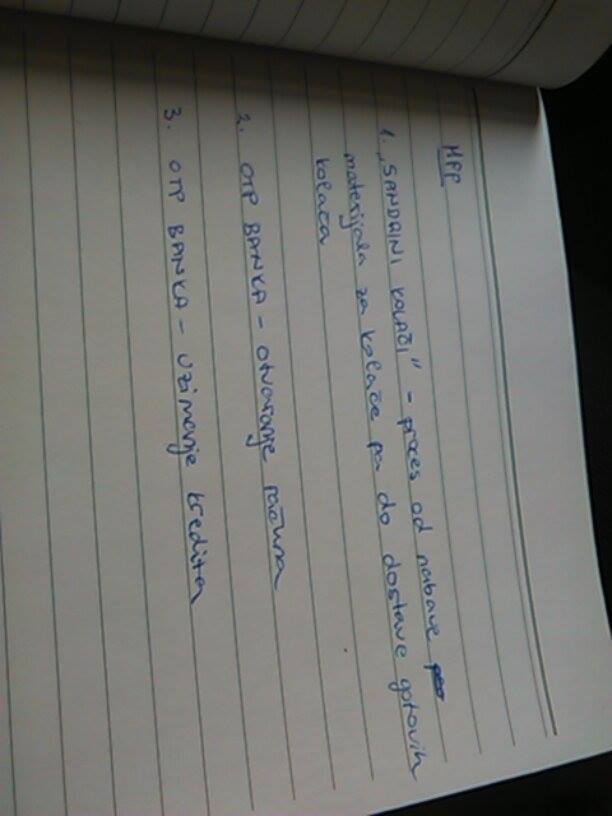 MPP
1. „SANDRINI KOLAČI" - proces od nabave
materijala za kolače pa do dostave gotovih
kolača
2. OTP BANKA - otvaranje računa
3. OTP BANKA - uzimanje kredita